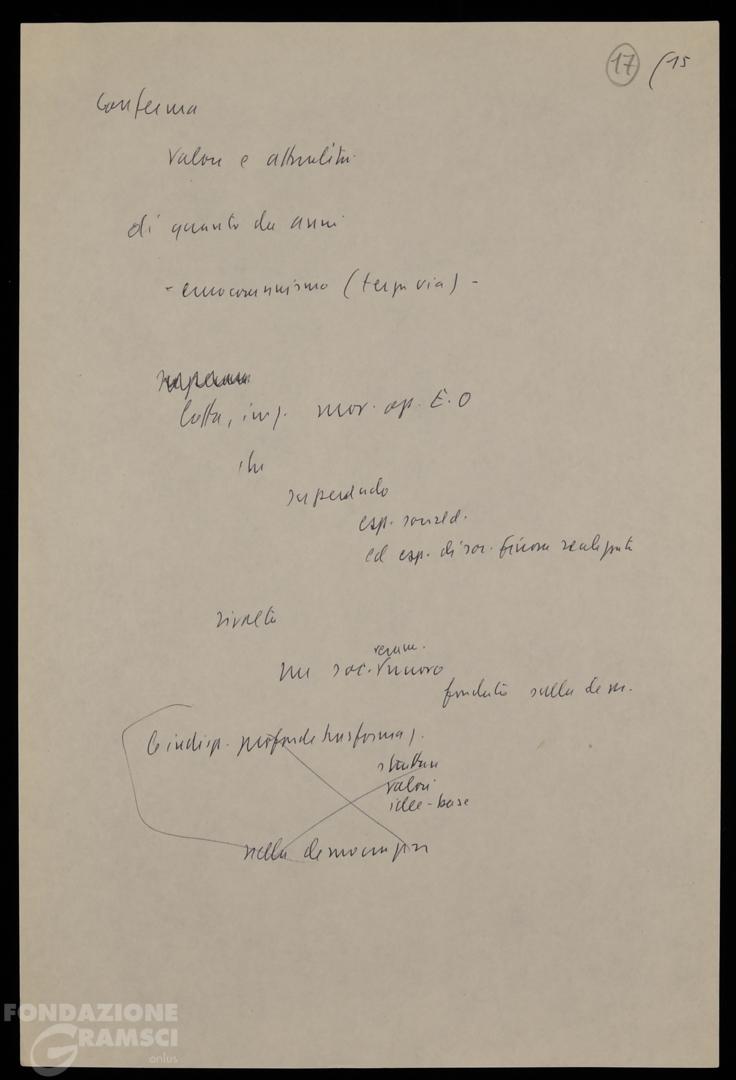 17 (15
Conferma
valore e attualità
di quanto da anni
- eurocomunismo (terza via) -
lotta, iniz. mov. op. E. O
che
superando
esp. sociald.
ed esp. di soc. finora realizzate
rivolta
un soc. veram. nuovo
fondato sulla dem.
le indisp. profonde trasformaz.
strutture
valori
idee-base
nella democrazia
FONDAZIONE
GRAMSCI
onlus